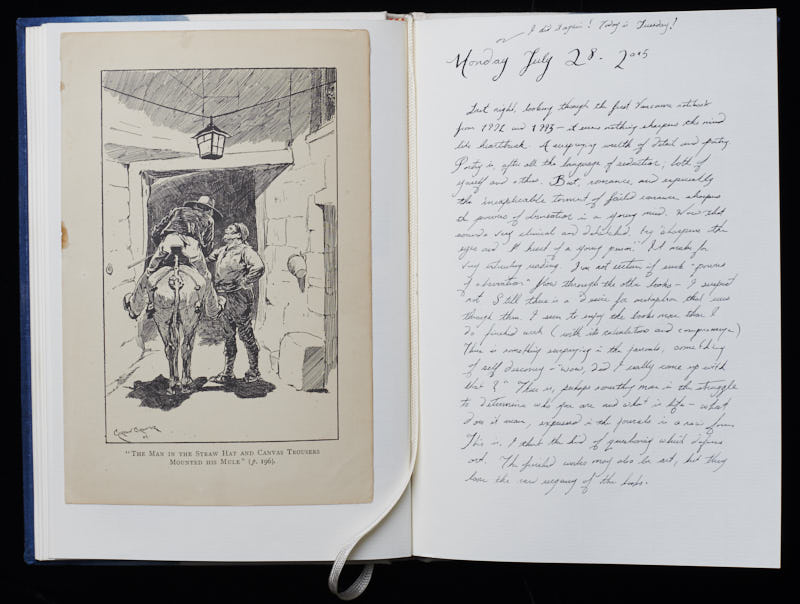 "The Man in the Straw Hat and Canvas Trousers
Mounted his Mule" (p. 196).
I did it again! Today is Tuesday!
Monday July 28. 2015
Last night, looking through the first Vancouver
from 1992 and 1993 – it seems nothing sharpens the mind
like heartbreak. A surprising wealth of detail and poetry
Poetry is, after all the language of seduction; both of
myself and others. But, romance, and especially
the inexplicable torment of failed romance sharpens
the powers of observation in a young man. Now that
sounds very clinical and detached. Try "sharpens the
eyes and heart of a young person." It makes for
very interesting reading. I'm not certain if such "powers
of observation" flow through the other books – I suspect
not. Still there is a desire for metaphor that runs
through them. I seem to enjoy the books more than I
do finished work (with its calculation and compromise)
There is something surprising in the journals, something
of self discovery – "wow, did I really come up with
that?" There is, perhaps something more in the struggle
to determine who you are and what is life – what
does it mean, expressed in the journals in a raw form.
This is, I think the kind of questioning which defines
art. The finished works may also be art, but they
lose the raw urgency of the books.